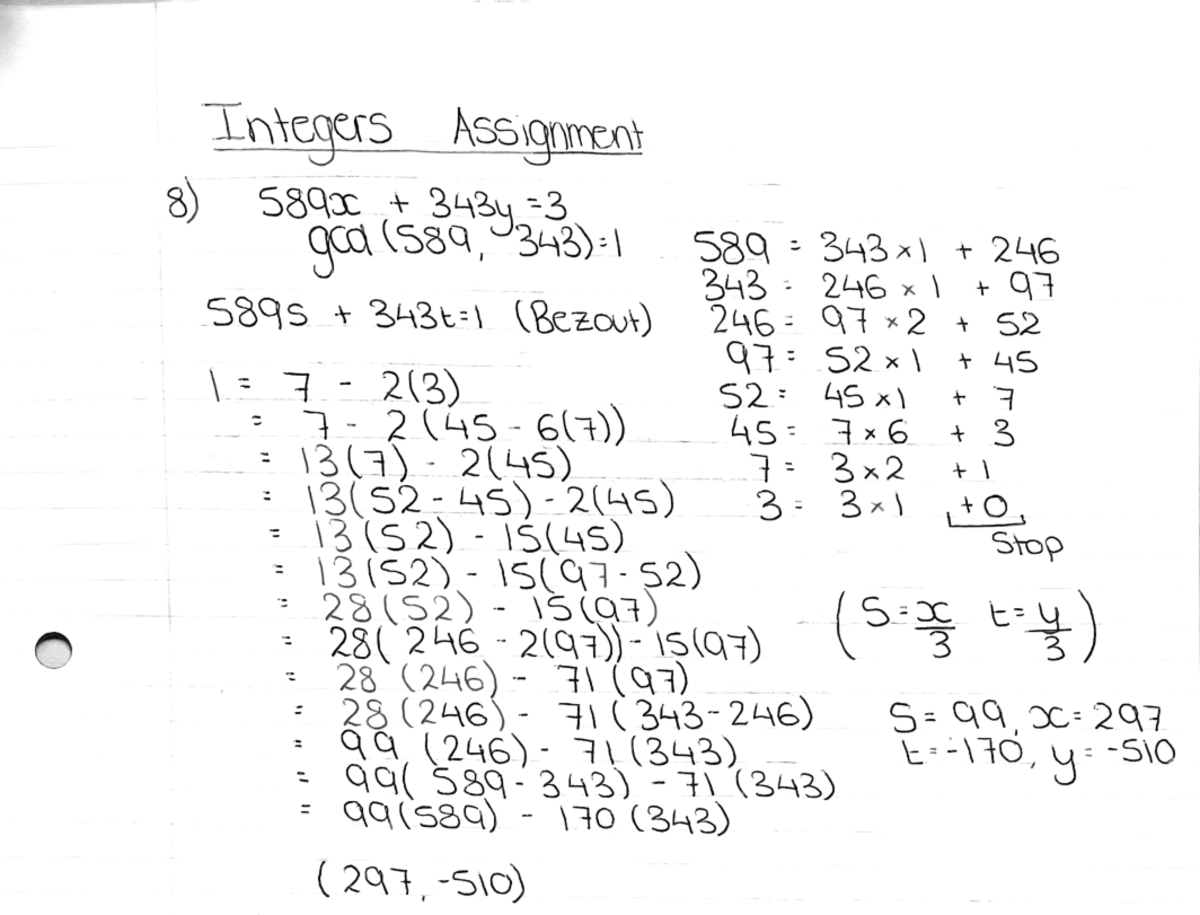 Integers Assignment
8) 589x + 343y = 3
gcd (589, 343) = 1
589s + 343t = 1 (Bezout)
1 = 7 - 2(3)
= 7 - 2(45 - 6(7))
= 13(7) - 2(45)
= 13(52 - 45) - 2(45)
= 13(52) - 15(45)
= 13(52) - 15(97 - 52)
= 28(52) - 15(97)
= 28(246 - 2(97)) - 15(97)
= 28(246) - 71(97)
= 28(246) - 71(343 - 246)
= 99(246) - 71(343)
= 99(589 - 343) - 71(343)
= 99(589) - 170(343)
(297, -510)
589 = 343 × 1 + 246
343 = 246 × 1 + 97
246 = 97 × 2 + 52
97 = 52 × 1 + 45
52 = 45 × 1 + 7
45 = 7 × 6 + 3
7 = 3 × 2 + 1
3 = 3 × 1 + 0
Stop
(S = x/3 t = y/3)
S = 99, x = 297
t = -170, y = -510